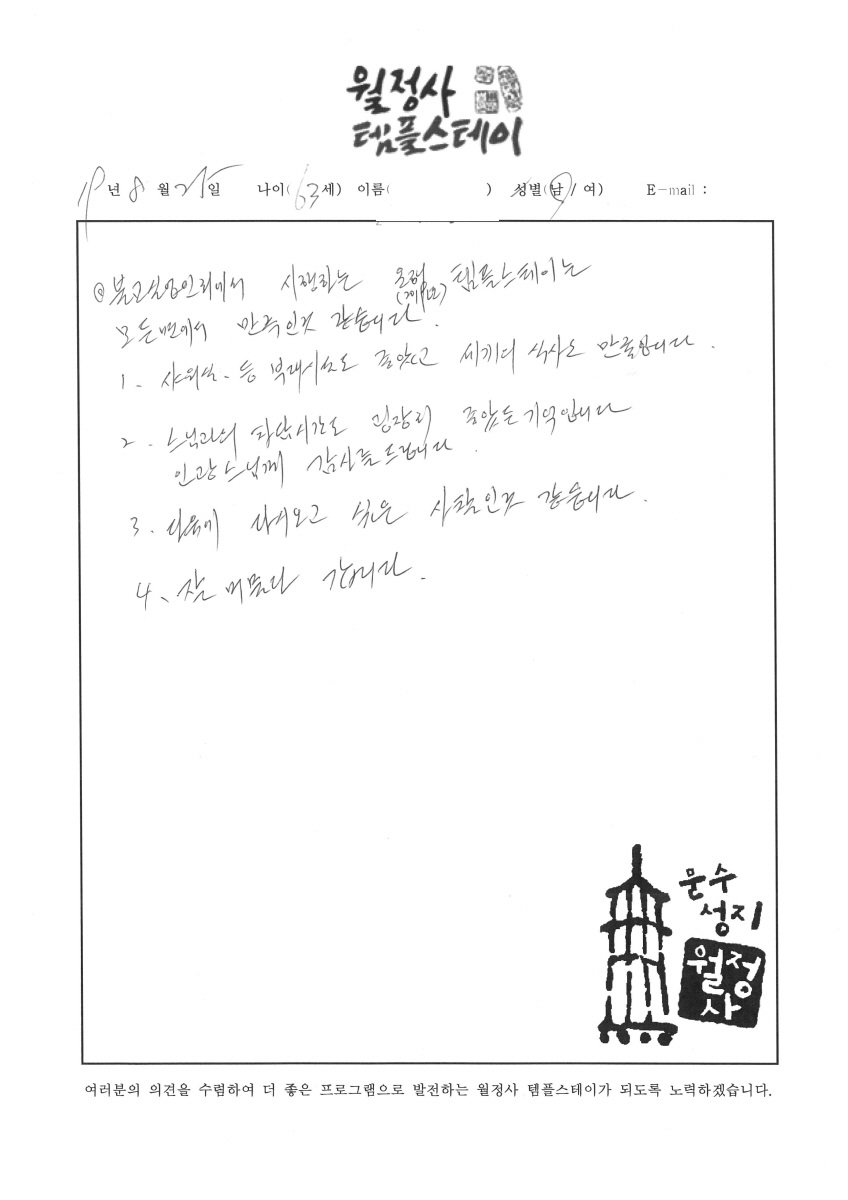 월정사
템플스테이
19년 8월 25일 나이(63세) 이름( ) 성별(남/여) E-mail :
@ 에서 시행하는 템플스테이는
(2019년)
모든면에서 만족인것 같습니다.
1. 샤워실. 등 부대시설도 좋았고 세끼의 식사도 만족입니다.
2. 스님과의 차담시간도 굉장히 좋았든 기억입니다
인광스님께 감사를 드립니다.
3. 다음에 다시오고 싶은 사찰인것 같습니다.
4. 잘 머물다 갑니다.
문수
성지
월정
사
여러분의 의견을 수렴하여 더 좋은 프로그램으로 발전하는 월정사 템플스테이가 되도록 노력하겠습니다.